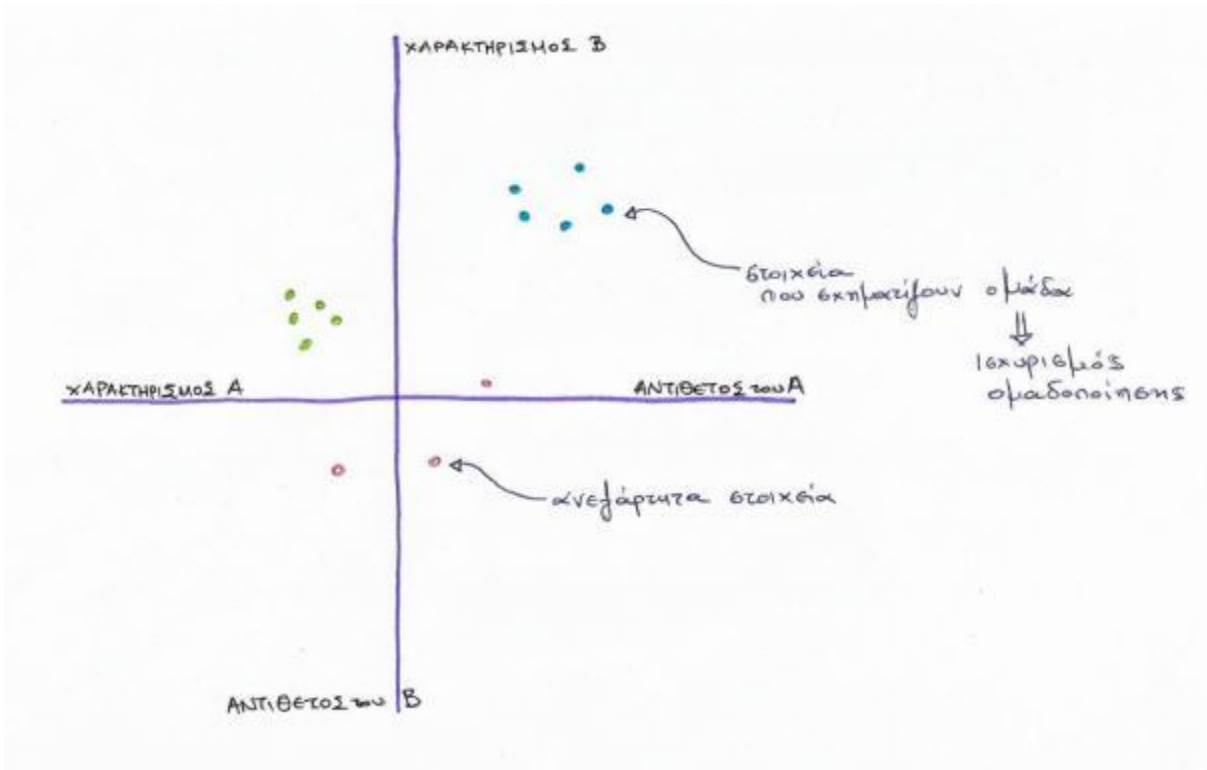 ΧΑΡΑΚΤΗΡΙΣΜΟΣ Β
στοιχεία
που σχηματίζουν ομάδα
⇓
Ισχυρισμός
ομαδοποίησης
ΧΑΡΑΚΤΗΡΙΣΜΟΣ Α
ΑΝΤΙΘΕΤΟΣ του Α
ανεξάρτητα στοιχεία
ΑΝΤΙΘΕΤΟΣ του Β